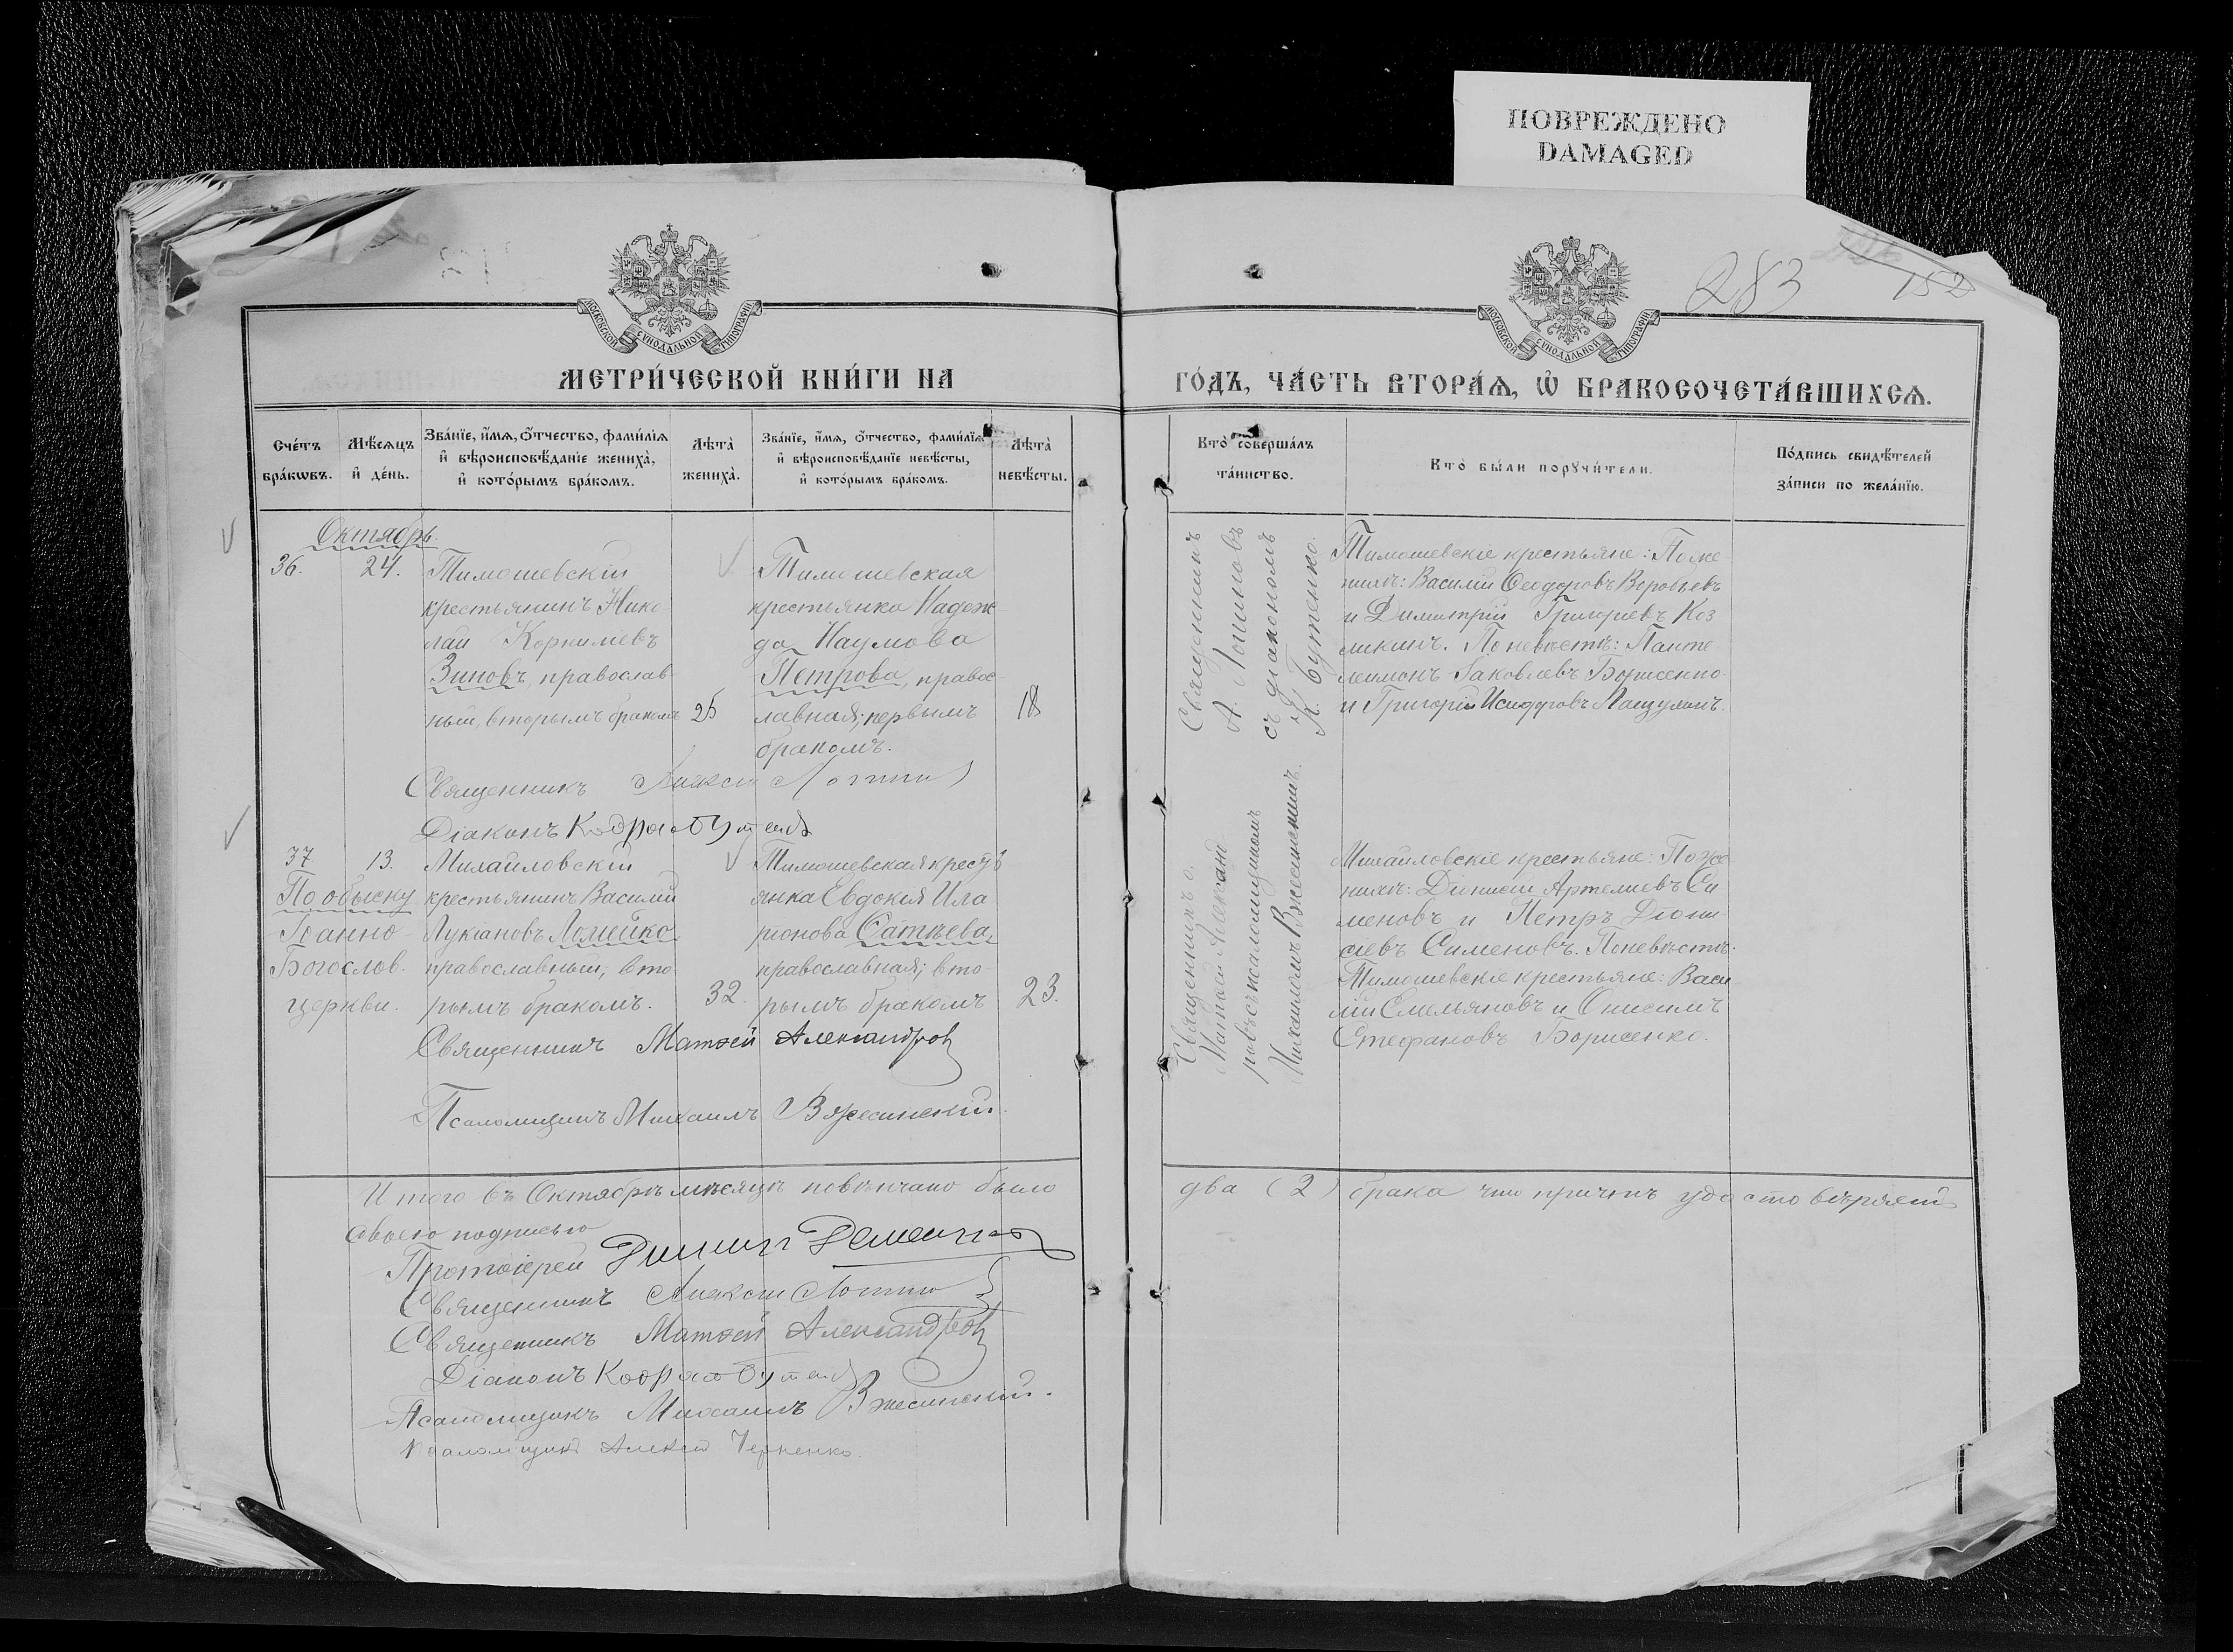 ПОВРЕЖДЕНО
DAMAGED
283
152
МОСКОВСКОЙ СѴНОДАЛЬНОЙ ТИПОГРАФІИ
МОСКОВСКОЙ СѴНОДАЛЬНОЙ ТИПОГРАФІИ
МЕТРИ́ЧЕСКОЙ КНИ́ГИ НА
ГО́ДЪ, ЧА́СТЬ ВТОРА́Ѧ, Ѡ҆ БРАКОСОЧЕТА́ВШИХСѦ.
Сче́тъ
бра́кѡвъ.
Мѣ́сяцъ
и҆ де́нь.
Зва́нїе, и҆́мѧ, ѻ҆́тчество, фами́лїѧ
и҆ вѣроисповѣ́данїе жениха̀,
и҆ кото́рымъ бра́комъ.
Лѣта̀
жениха̀.
Зва́нїе, и҆́мѧ, ѻ҆́тчество, фами́лїѧ
и҆ вѣроисповѣ́данїе невѣ́сты,
и҆ кото́рымъ бра́комъ.
Лѣта̀
невѣ́сты.
Кто̀ соверша́лъ
та́инство.
Кто̀ бы́ли порꙋчи́тели.
По́дпись свидѣ́телей
за́писи по жела́нїю.
Октябрь.
36.
24.
Тимошевскій
крестьянинъ Нико
лай Корниліевъ
Зиновъ, православ-
ный, вторымъ бракомъ
25
Тимошевская
крестьянка Надеж
да Наумова
Петрова, правос-
лавная; первымъ
бракомъ.
18
Священникъ
А. Логиновъ
съ діакономъ
К. Бутенко.
Тимошевскіе крестьяне: По же-
нихѣ: Василій Ѳеодоровъ Воробьевъ
и Димитрій Григорьевъ Коз
ликинъ. По невѣстѣ: Панте
леимонъ Іаковлевъ Борисенко
и Григорій Исидоровъ
Священникъ Алексій
Діаконъ
37.
13.
По обыску
Іоанно-
Богослов.
церкви.
Михайловскій
крестьянинъ Василій
Лукіановъ Ломейко,
православный; вто-
рымъ бракомъ.
32.
Тимошевская кресть
янка Евдокія Ила
ріонова Сатѣева,
православная; вто-
рымъ бракомъ
23.
Священникъ о.
Матѳей Александ
ровъ съ псаломщикомъ
Михаиломъ Вжесинскимъ.
Михайловскіе крестьяне: По же
нихѣ: Діонисій Артеміевъ Си
меновъ и Петръ Діони-
сіевъ Сименовъ. По невѣстѣ:
Тимошевскіе крестьяне: Васи
лій Емельяновъ и Онисимъ
Стефановъ Борисенко.
Священникъ Матѳей Александровъ
Псаломщикъ Михаилъ Вжесинскій.
Итого въ Октябрѣ мѣсяцѣ повѣнчано было
два (2) брака что причтъ удостовѣряетъ
своею подписью
Протоіерей
Священникъ Алексій
Священникъ Матѳей Александровъ
Діаконъ
Псаломщикъ Михаилъ Вжесинскій.
Псаломщикъ Алексѣй Черненко.